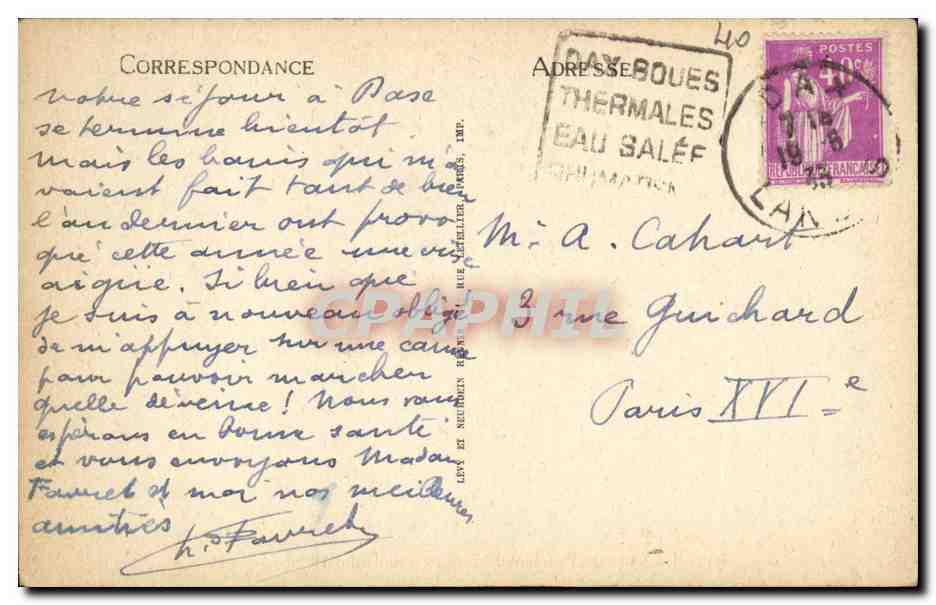 CORRESPONDANCE
Notre séjour à Dax
se termine bientôt.
Mais les bains qui m'a
vaient fait tant de bien
l'an dernier ont provo
qué cette année une crise
aigüe. Si bien que
je suis à nouveau obligé
de m'appuyer sur une canne
pour pouvoir marcher
quelle déveine! Nous vous
espérons en bonne santé
et vous envoyons Madame
Favret et moi nos meilleures
amitiés
h. Favret
LÉVY ET NEURDEIN RÉUNIS RUE LETELLIER, PARIS, IMP.
ADRESSE
40
DAX BOUES
THERMALES
EAU SALÉE
RHUMATISM
POSTES
40c
RÉPUBLIQUE FRANÇAISE
DAX
19
LANDES
Mr A. Cahart
3 rue Guichard
Paris XVIe
CPAPHIL